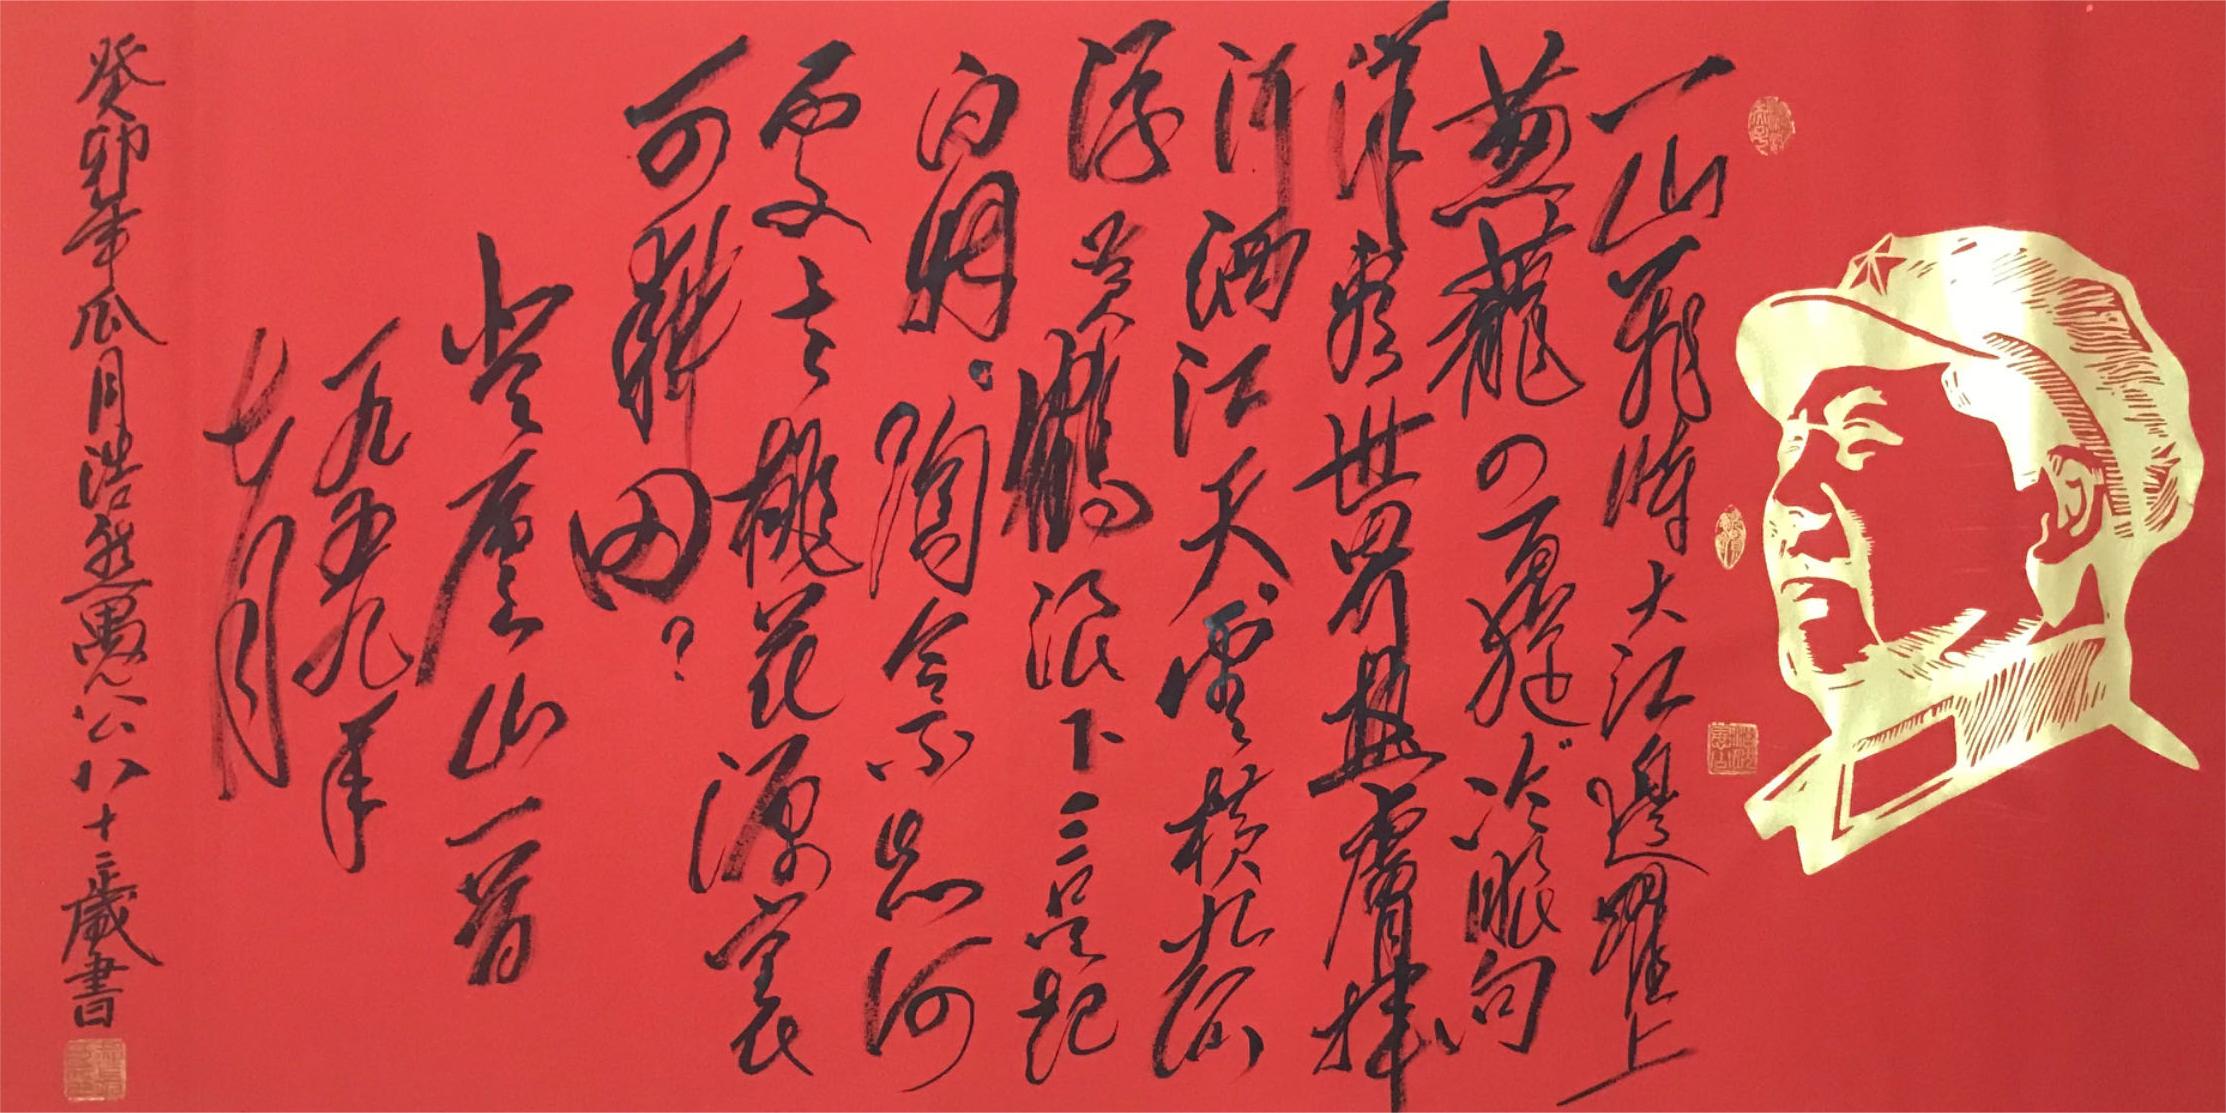 一山飛峙大江邊躍上
葱蘢四百旋冷眼向
洋看世界熱膚揮
汗洒江天雲横九派
浮黄鶴浪下三吴起
白烟。陶令不知何
處去桃花源裏
可耕田?
登廬山一首
一九五九年
七月
癸卯年瓜月浩然愚公八十三歲書